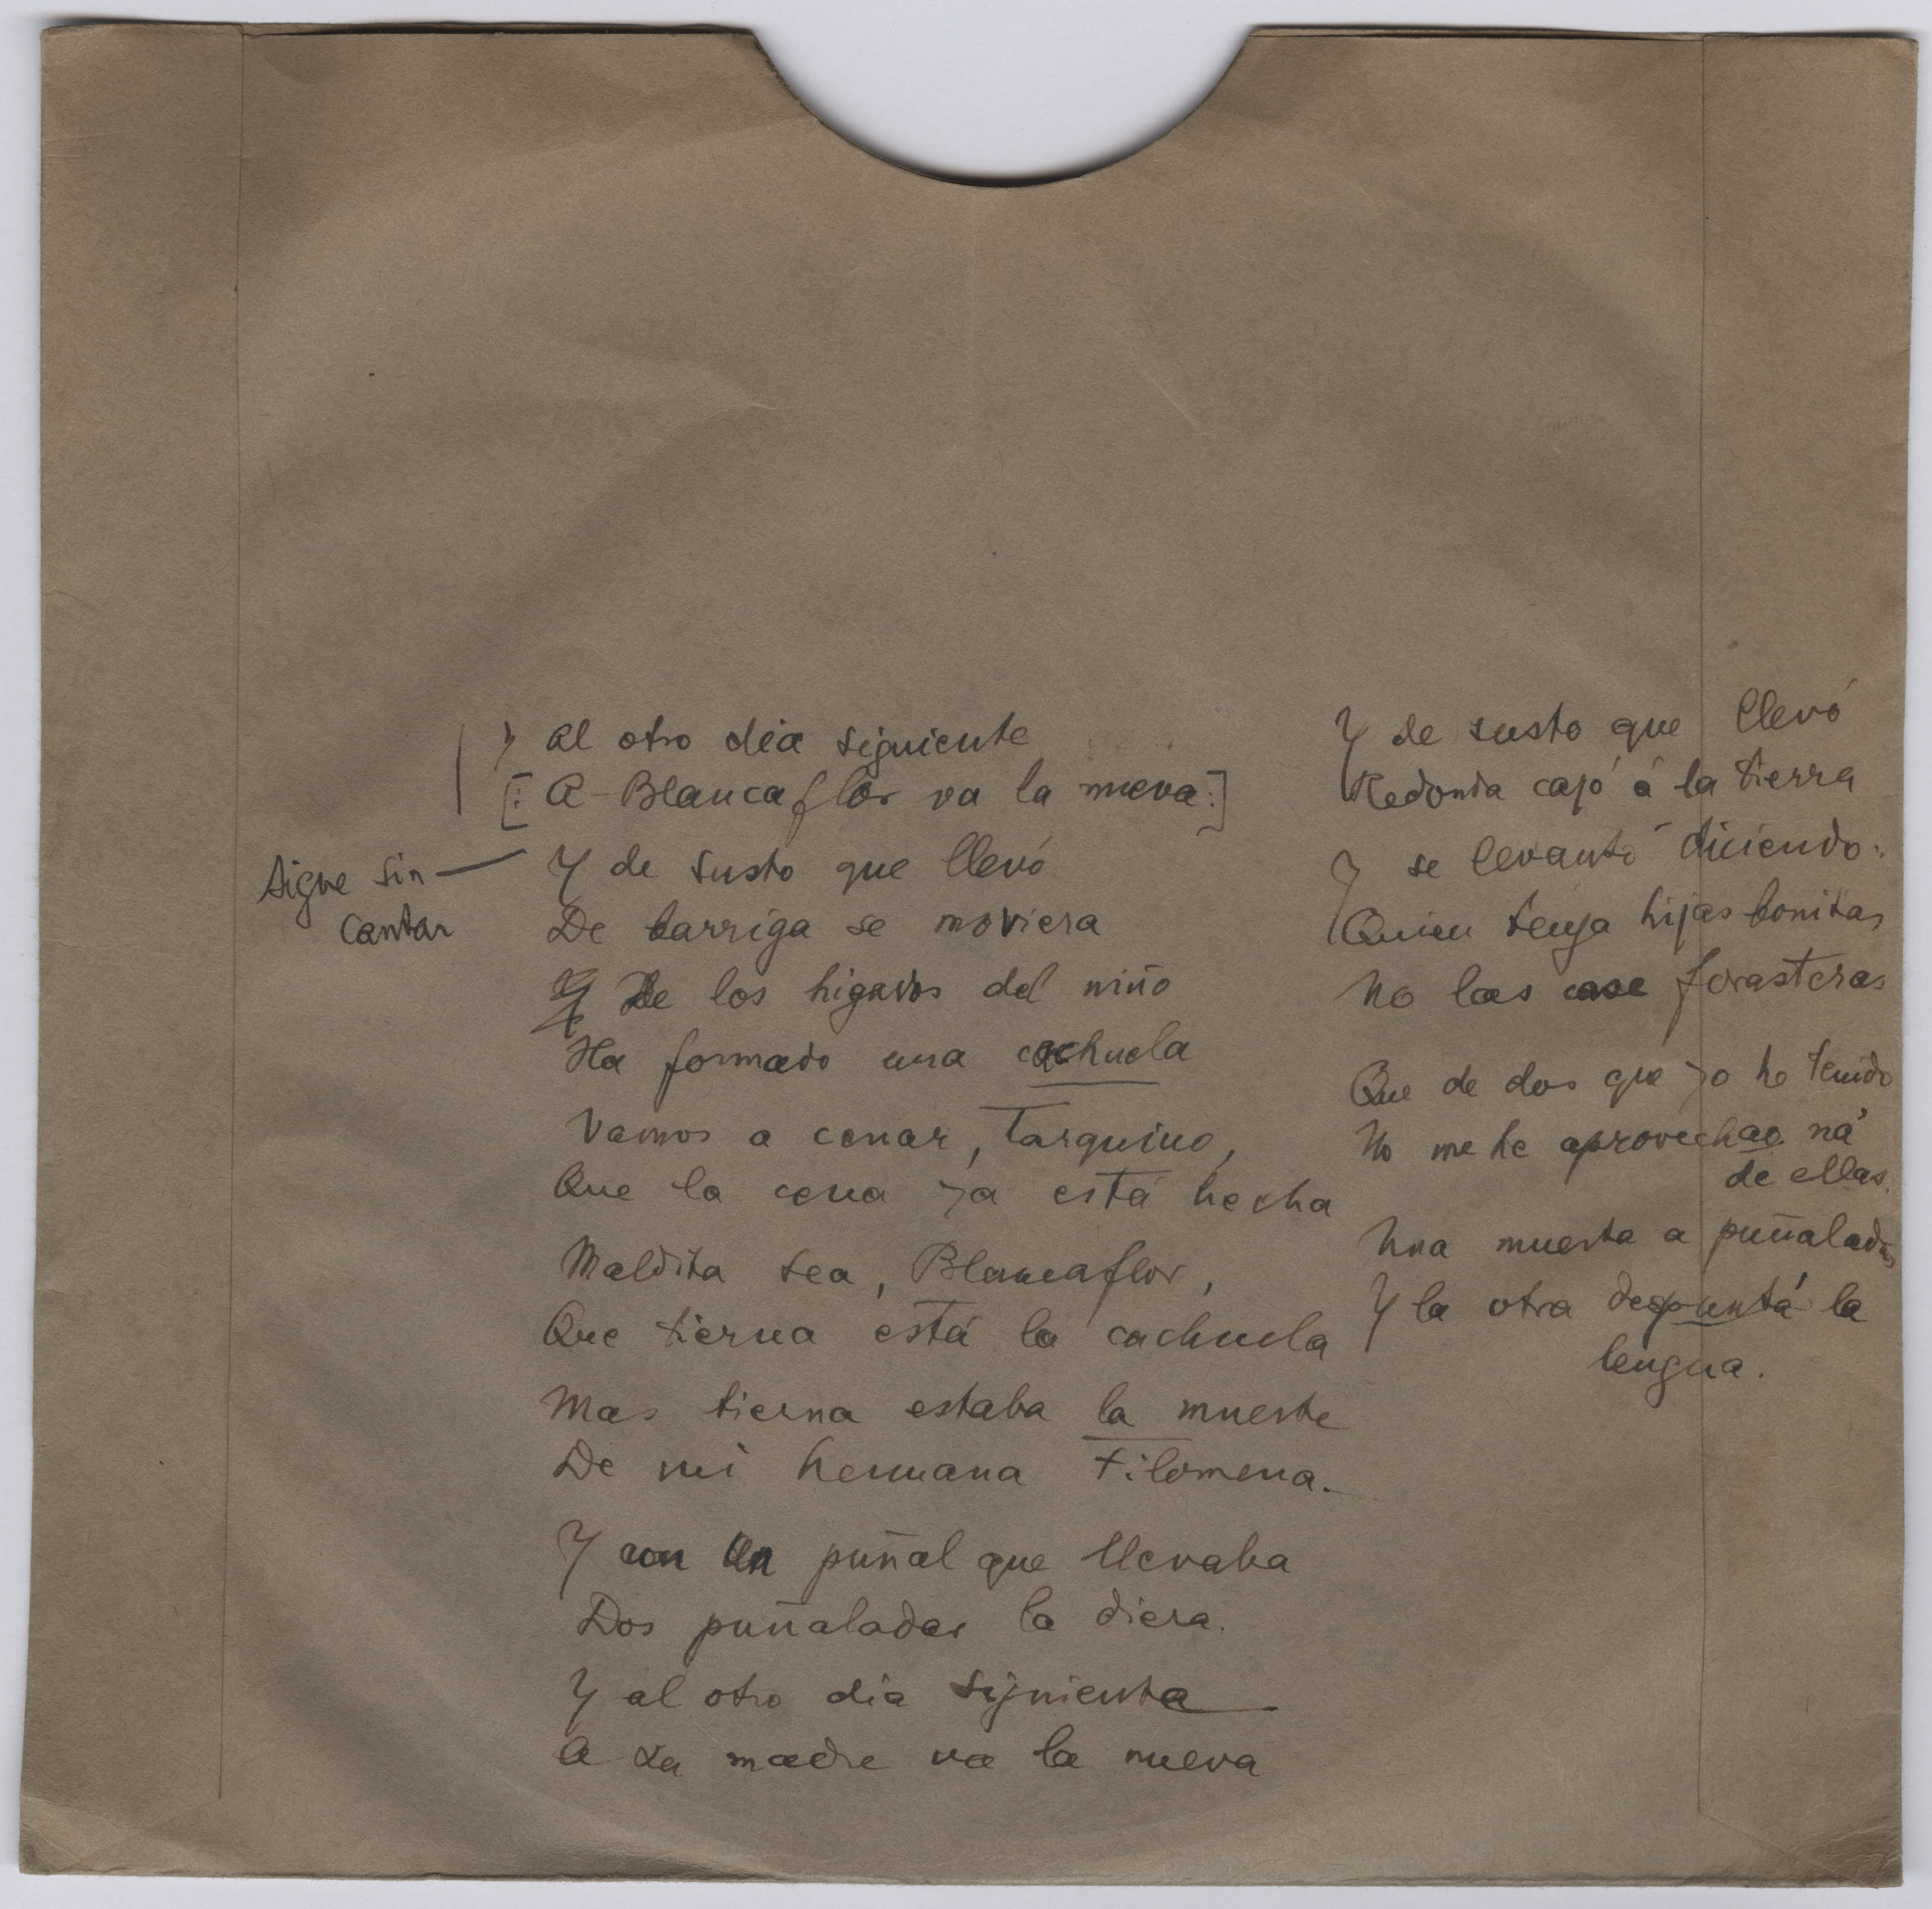 Y al otro dia siguiente
[: A Blancaflor va la nueva :]
Sigue sin
cantar
Y de susto que llevó
De barriga se moviera
De los higados del niño
Ha formado una cachuela
Vamos a cenar, Tarquino,
Que la cena ya está hecha
Maldita sea, Blancaflor,
Que tierna está la cachuela
Mas tierna estaba la muerte
De mi hermana Filomena.
Y con un puñal que llevaba
Dos puñaladas la diera.
Y al otro dia siguiente
A la madre va la nueva
Y de susto que llevó
Redonda cayó á la tierra
Y se levantó diciendo:
Quien tenga hijas bonitas
No las case forasteras
Que de dos que yo he tenido
No me he aprovechao ná
de ellas.
Una muerta a puñaladas
Y la otra despuntá la
lengua.